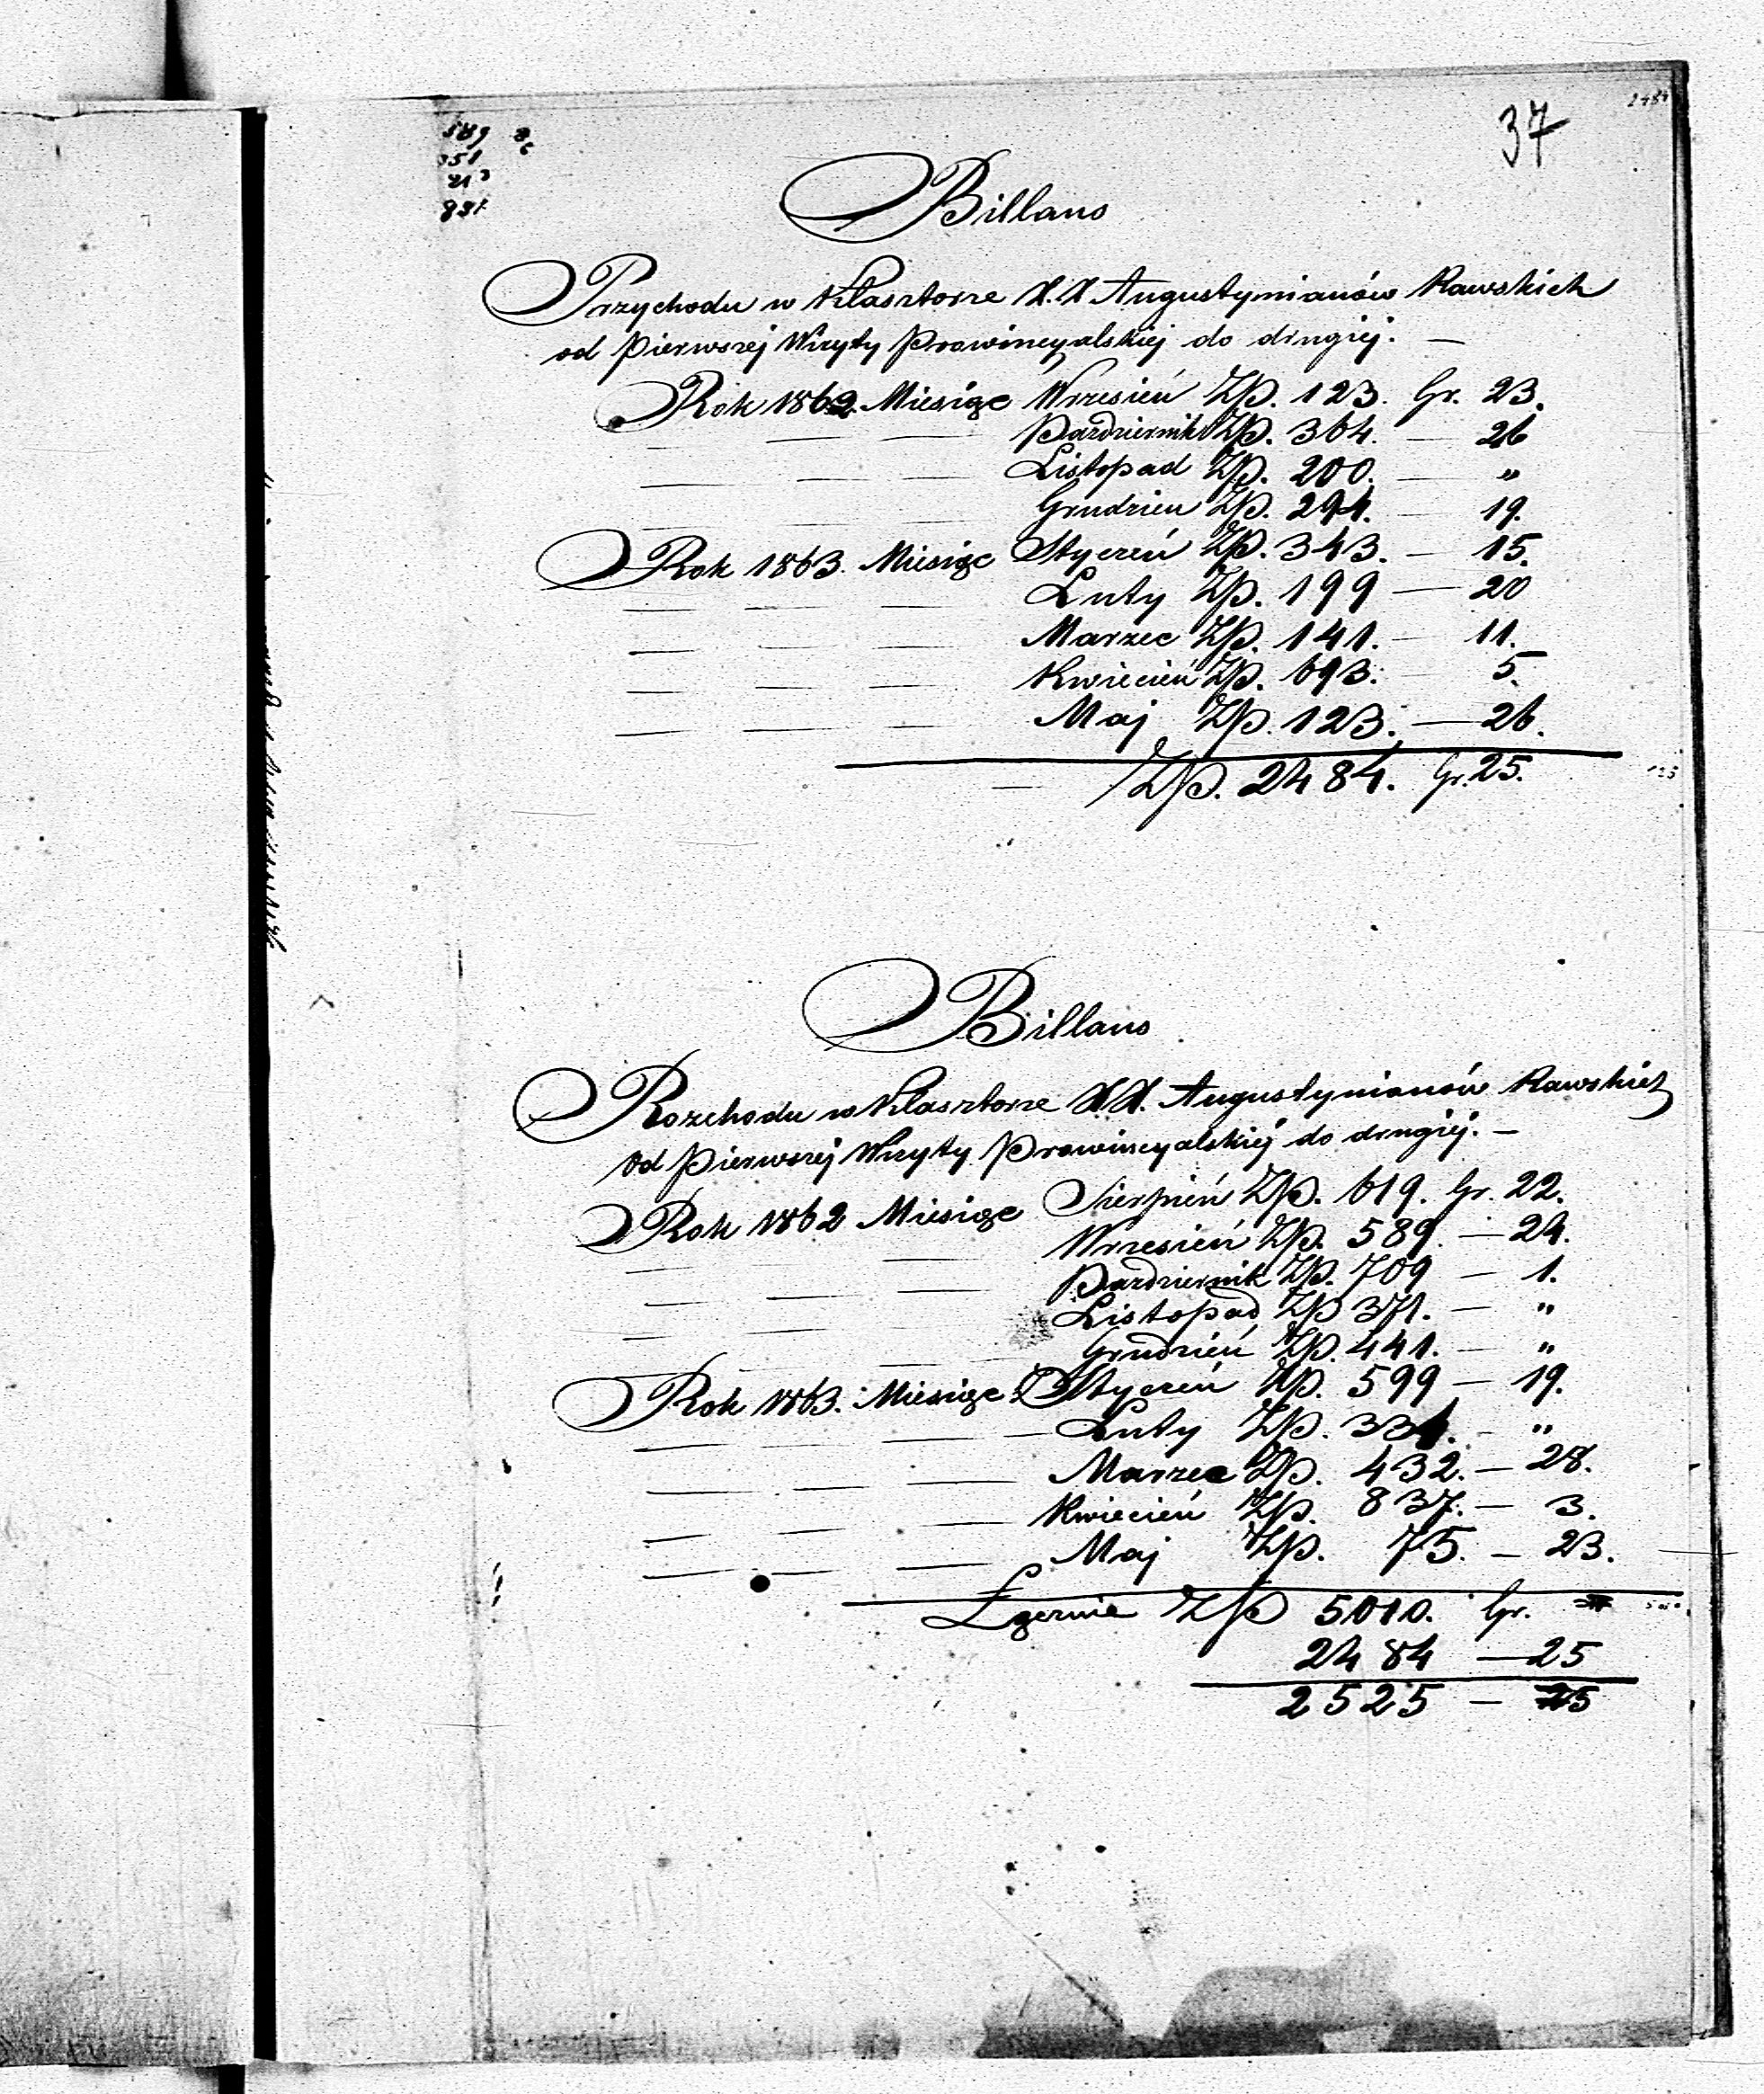 37
2484
589
351
213
831
Billans
Przychodu w Klasztorze X.X Augustynianów Rawskich
od Pierwszej Wizyty Prowincyalskiej do drugiej. —
Rok 1862. Miesiąc Wrzesień Zp. 123. Gr. 23.
— — — Pazdziernik Zp. 364. — 26
— — — Listopad Zp. 200. — "
— — — Grudzien Zp. 294. — 19.
Rok 1863. Miesiąc Styczeń Zp. 343. — 15.
— — — Luty Zp. 199 — 20
— — — Marzec Zp. 141. — 11.
— — — Kwiecień Zp. 693. — 5.
— — — Maj Zp. 123. — 26.
— Zp. 2484. Gr. 25.
Billans
Rozchodu w Klasztorze X.X. Augustynianów Rawskich
Od Pierwszej Wizyty Prowincyalskiej do drugiej. —
Rok 1862 Miesiąc Sierpień Zp. 619. Gr. 22.
— — — Wrzesień Zp. 589. — 24.
— — — Pazdziernik Zp. 709 — 1.
— — — Listopad Zp 371. — "
— — — Grudzień Zp. 441. — "
Rok 1863. Miesiąc Styczeń Zp. 599 — 19.
— — — Luty Zp. 334. — "
— — — Marzec Zp. 432. — 28.
— — — Kwiecień Zp. 837. — 3.
— — — Maj Zp. 75. — 23.
Łącznie Zp 5010. Gr.
2484 — 25
2525 — 5